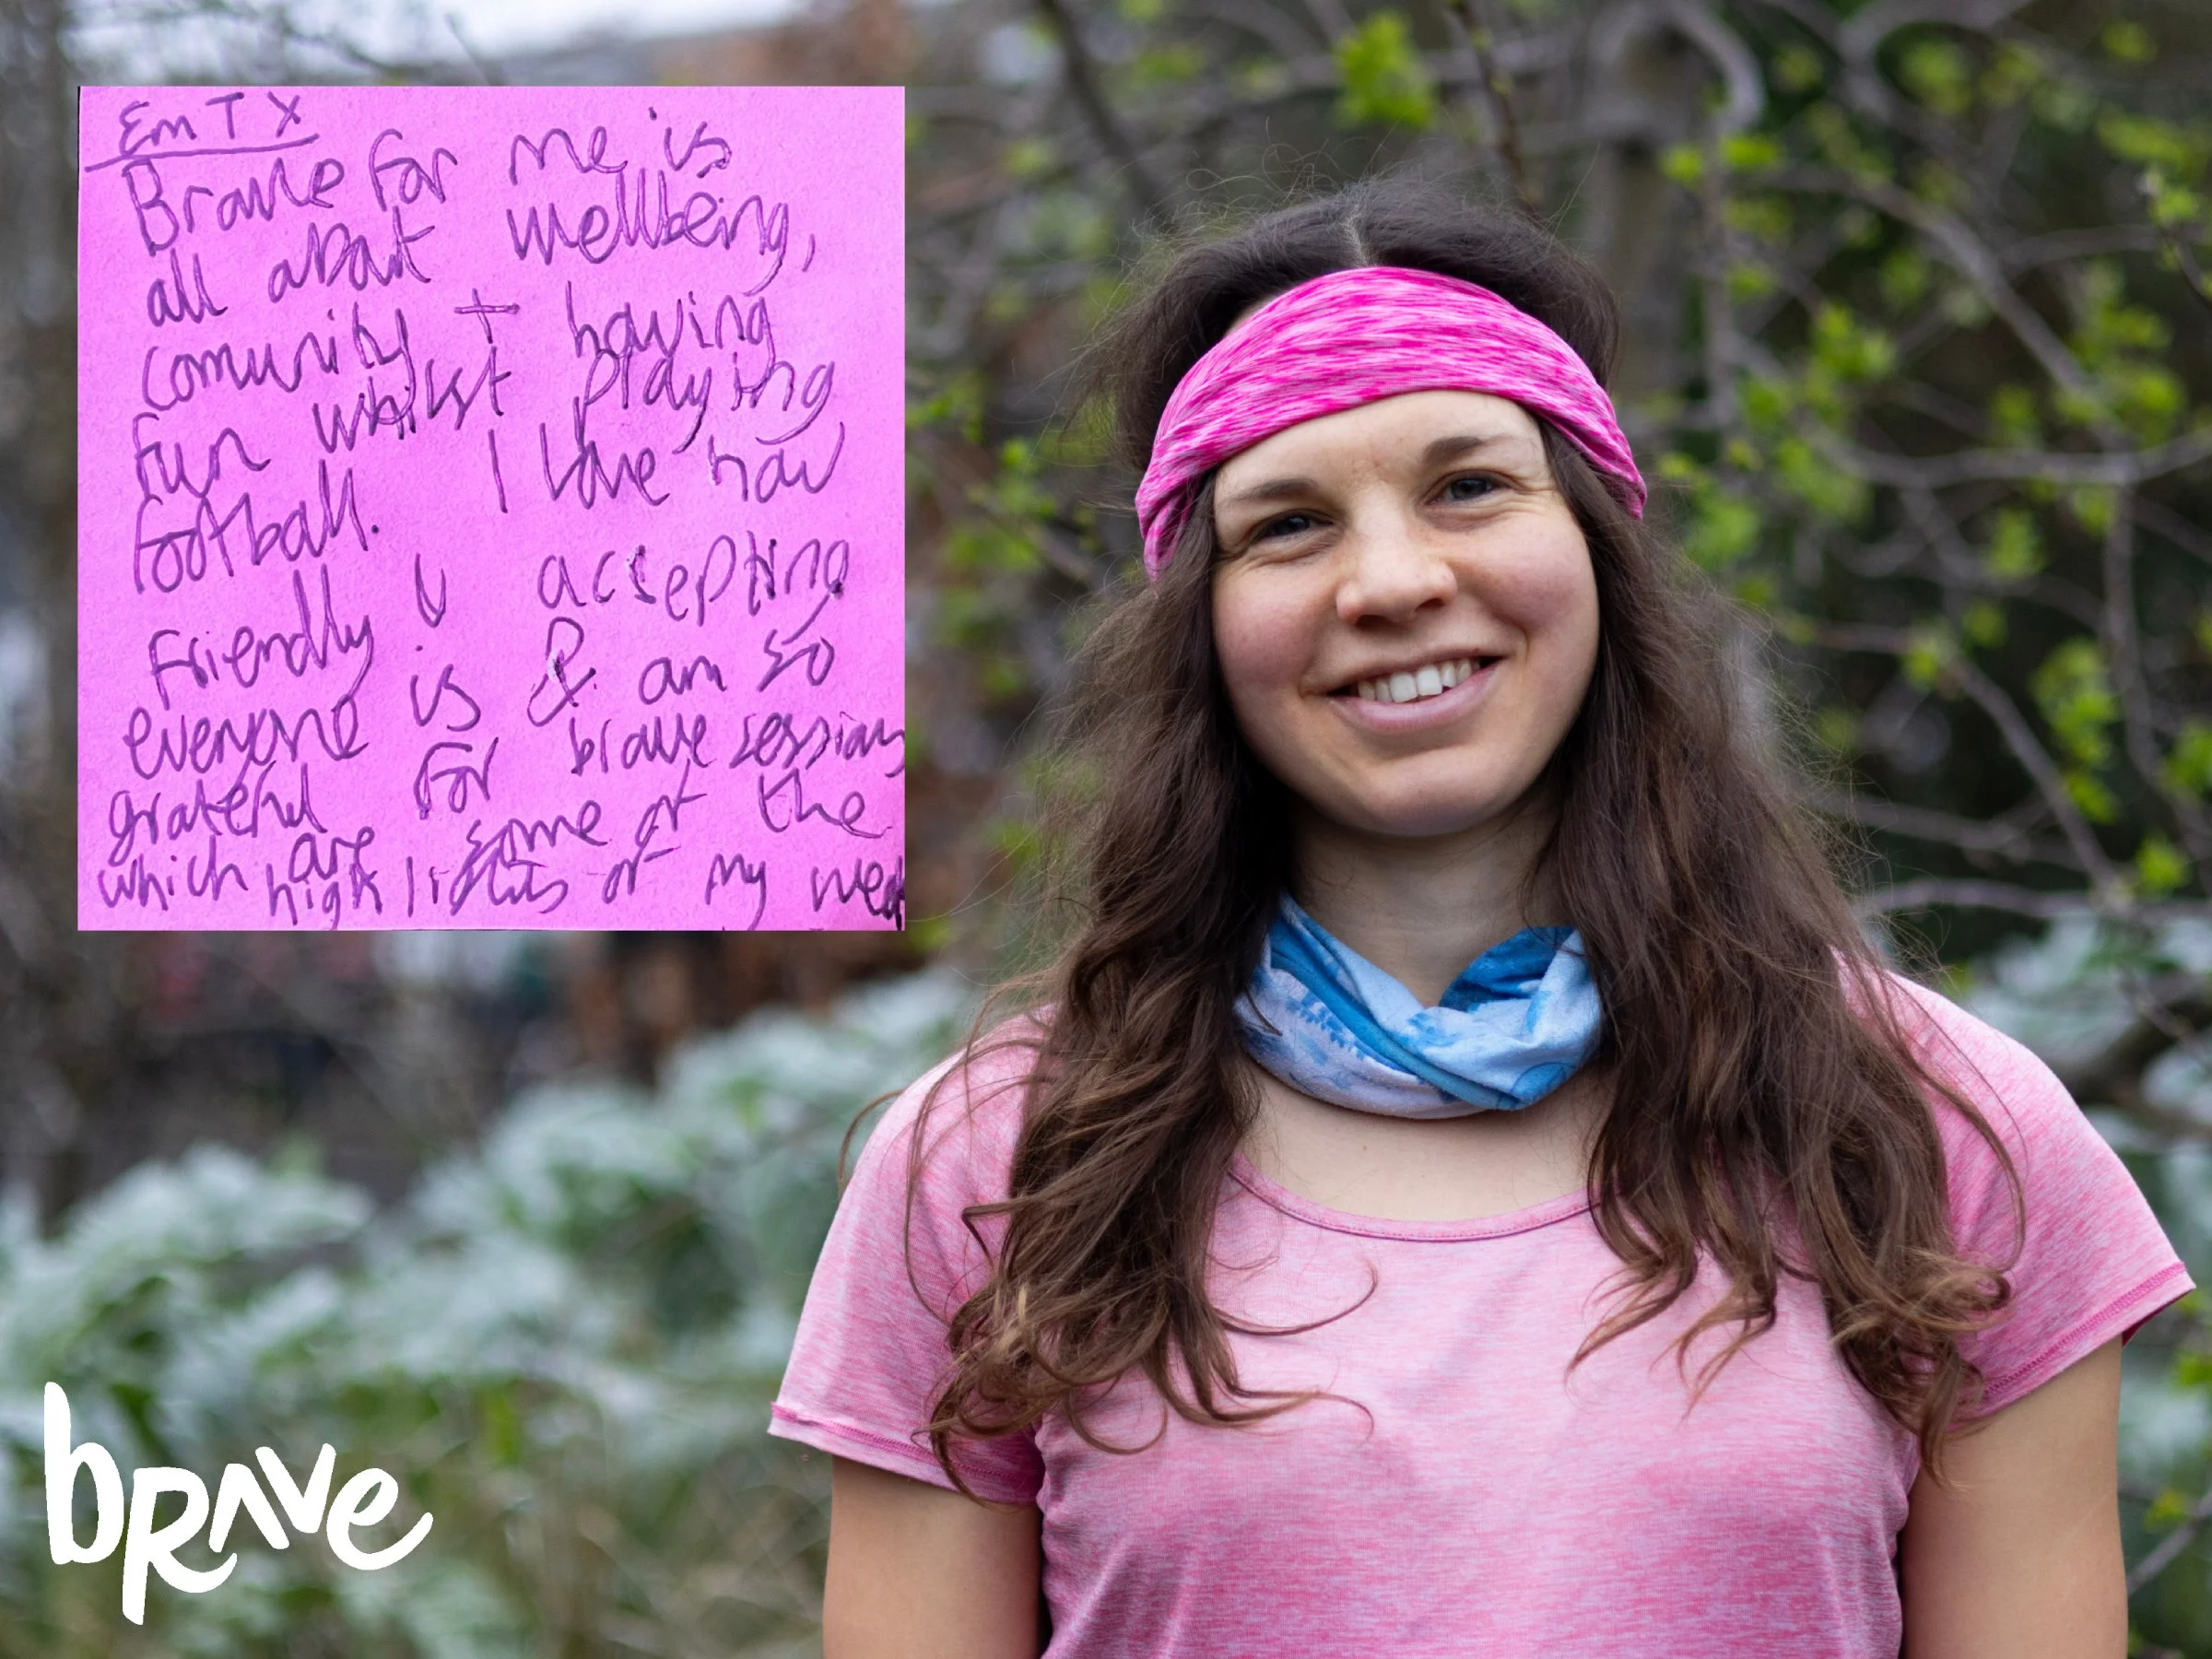 Em T X
Brave for me is
all about wellbeing,
comunity + having
fun whilst playing
football. I love how
friendly & accepting
everyone is & am so
grateful for brave sessions
which are some of the
high lights of my week
brave